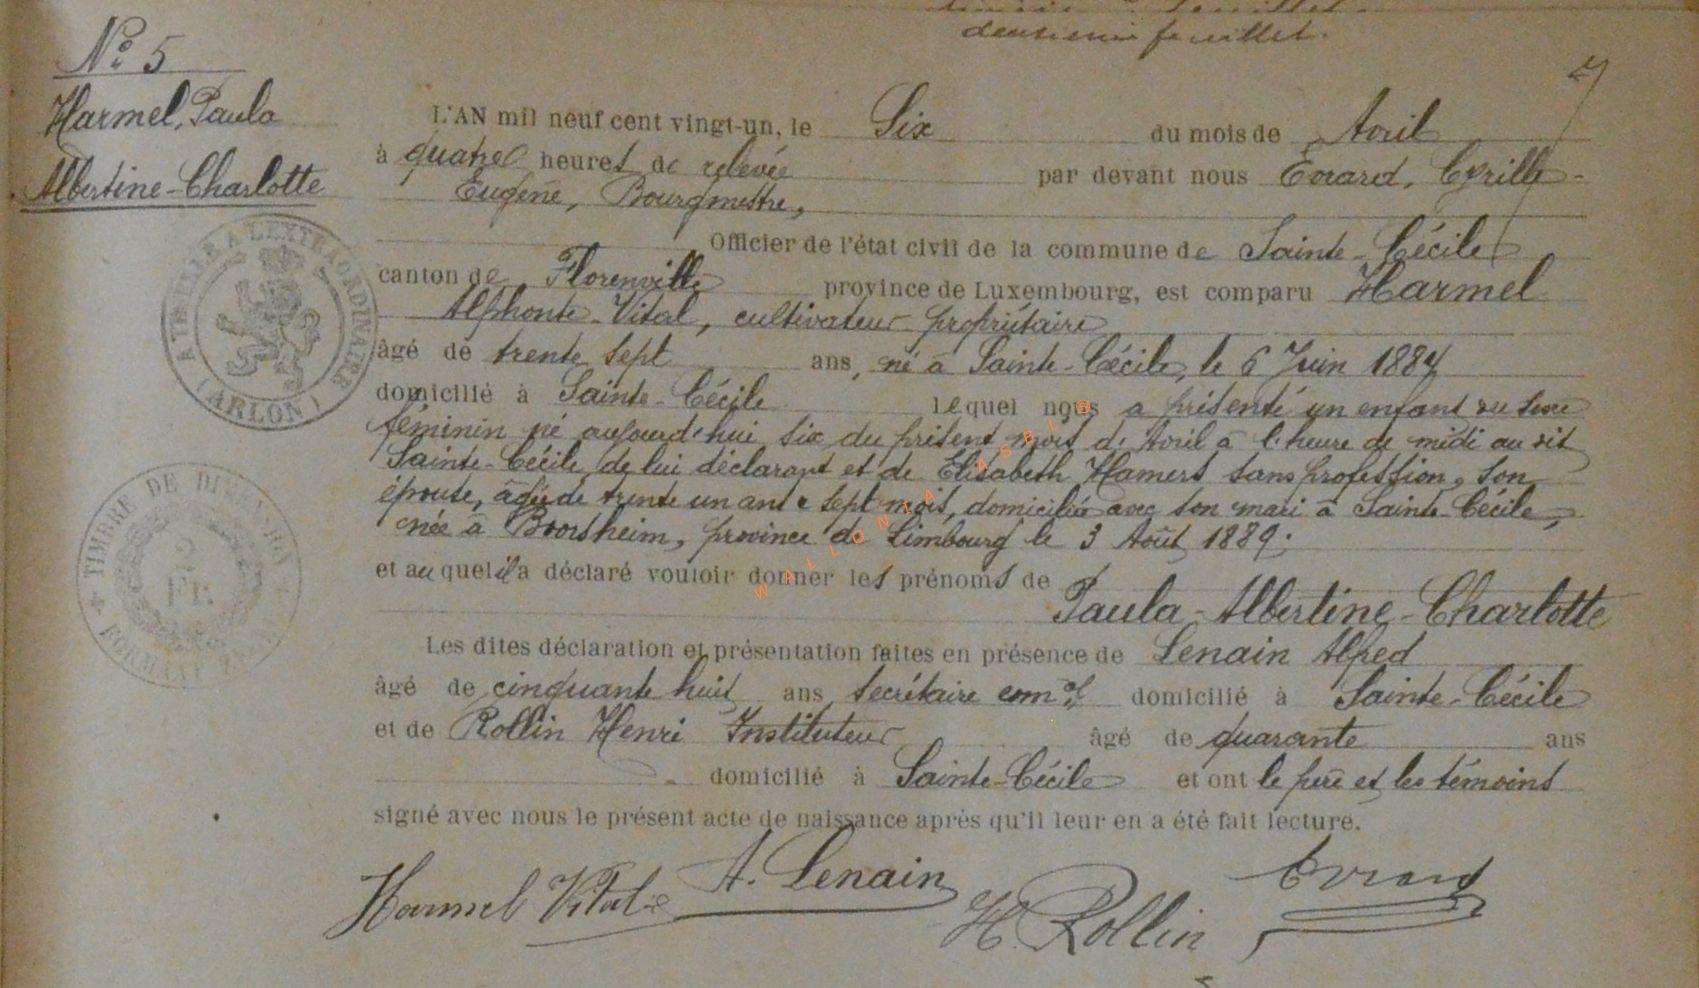 deuxième feuillet.
Nº 5
Harmel, Paula
Albertine-Charlotte
L'AN mil neuf cent vingt-un, le Six du mois de Avril
à quatre heures de relevée par devant nous Evrard, Cyrille-
Eugène, Bourgmestre,
Officier de l'état civil de la commune de Sainte-Cécile
canton de Florenville province de Luxembourg, est comparu Harmel
Alphonse-Vital, cultivateur propriétaire
âgé de trente sept ans, né à Sainte-Cécile, le 6 Juin 1884
domicilié à Sainte-Cécile lequel nous a présenté un enfant du sexe
féminin né aujourd'hui six du présent mois d'Avril à l'heure de midi au dit
Sainte-Cécile, de lui déclarant et de Elisabeth Hamers sans profession, son
épouse, âgée de trente un ans e sept mois, domiciliée avec son mari à Sainte-Cécile,
née à Broosheim, province de Limbourg le 3 Août 1889;
et auquel il a déclaré vouloir donner les prénoms de
Paula-Albertine-Charlotte
Les dites déclaration et présentation faites en présence de Lenain Alfred
âgé de cinquante huit ans secrétaire com.al domicilié à Sainte-Cécile
et de Rollin Henri Instituteur âgé de quarante ans
domicilié à Sainte-Cécile et ont le père et les témoins
signé avec nous le présent acte de naissance après qu'il leur en a été fait lecture.
Harmel Vital A. Lenain H. Rollin Evrard
A TIMBRER A L'EXTRAORDINAIRE
(ARLON)
TIMBRE DE DIMENSION
2
FR.
WALLONIA ASBL ©